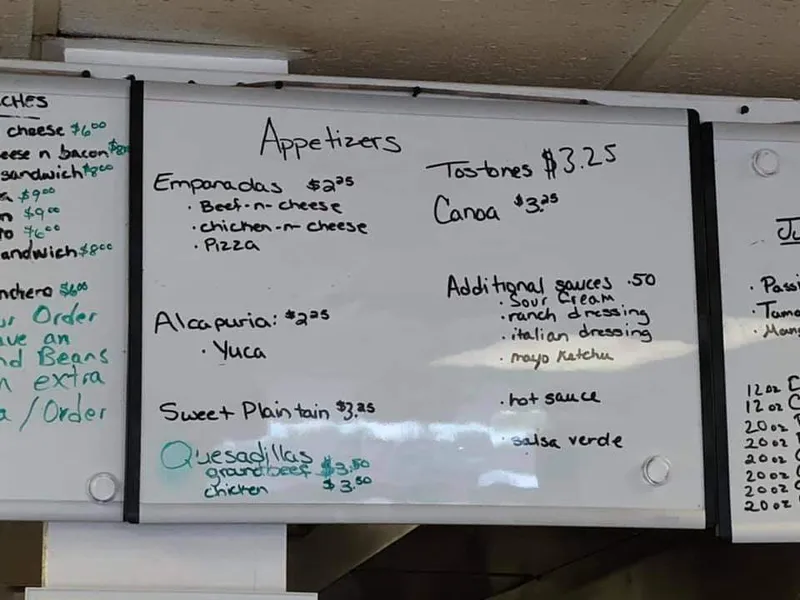 CHES
cheese $6.00
eese n bacon $8
sandwich $8.00
$9.00
n $9.00
to $6.00
andwich $8.00
nchero $6.00
ur Order
ave an
nd Beans
n extra
a / Order
Appetizers
Empanadas $2.25
· Beef-n-cheese
· chicken-n-cheese
· Pizza
Alcapuria: $2.25
· Yuca
Sweet Plaintain $3.25
Quesadillas
ground beef $3.50
chicken $3.50
Tostones $3.25
Canoa $3.25
Additional sauces .50
· Sour Cream
· ranch dressing
· italian dressing
· mayo ketchu
· hot sauce
· salsa verde
Ju
· Passi
· Tama
· Mang
12 oz
12 oz
20 oz
20 oz
20 oz
20 oz
20 oz
20 oz